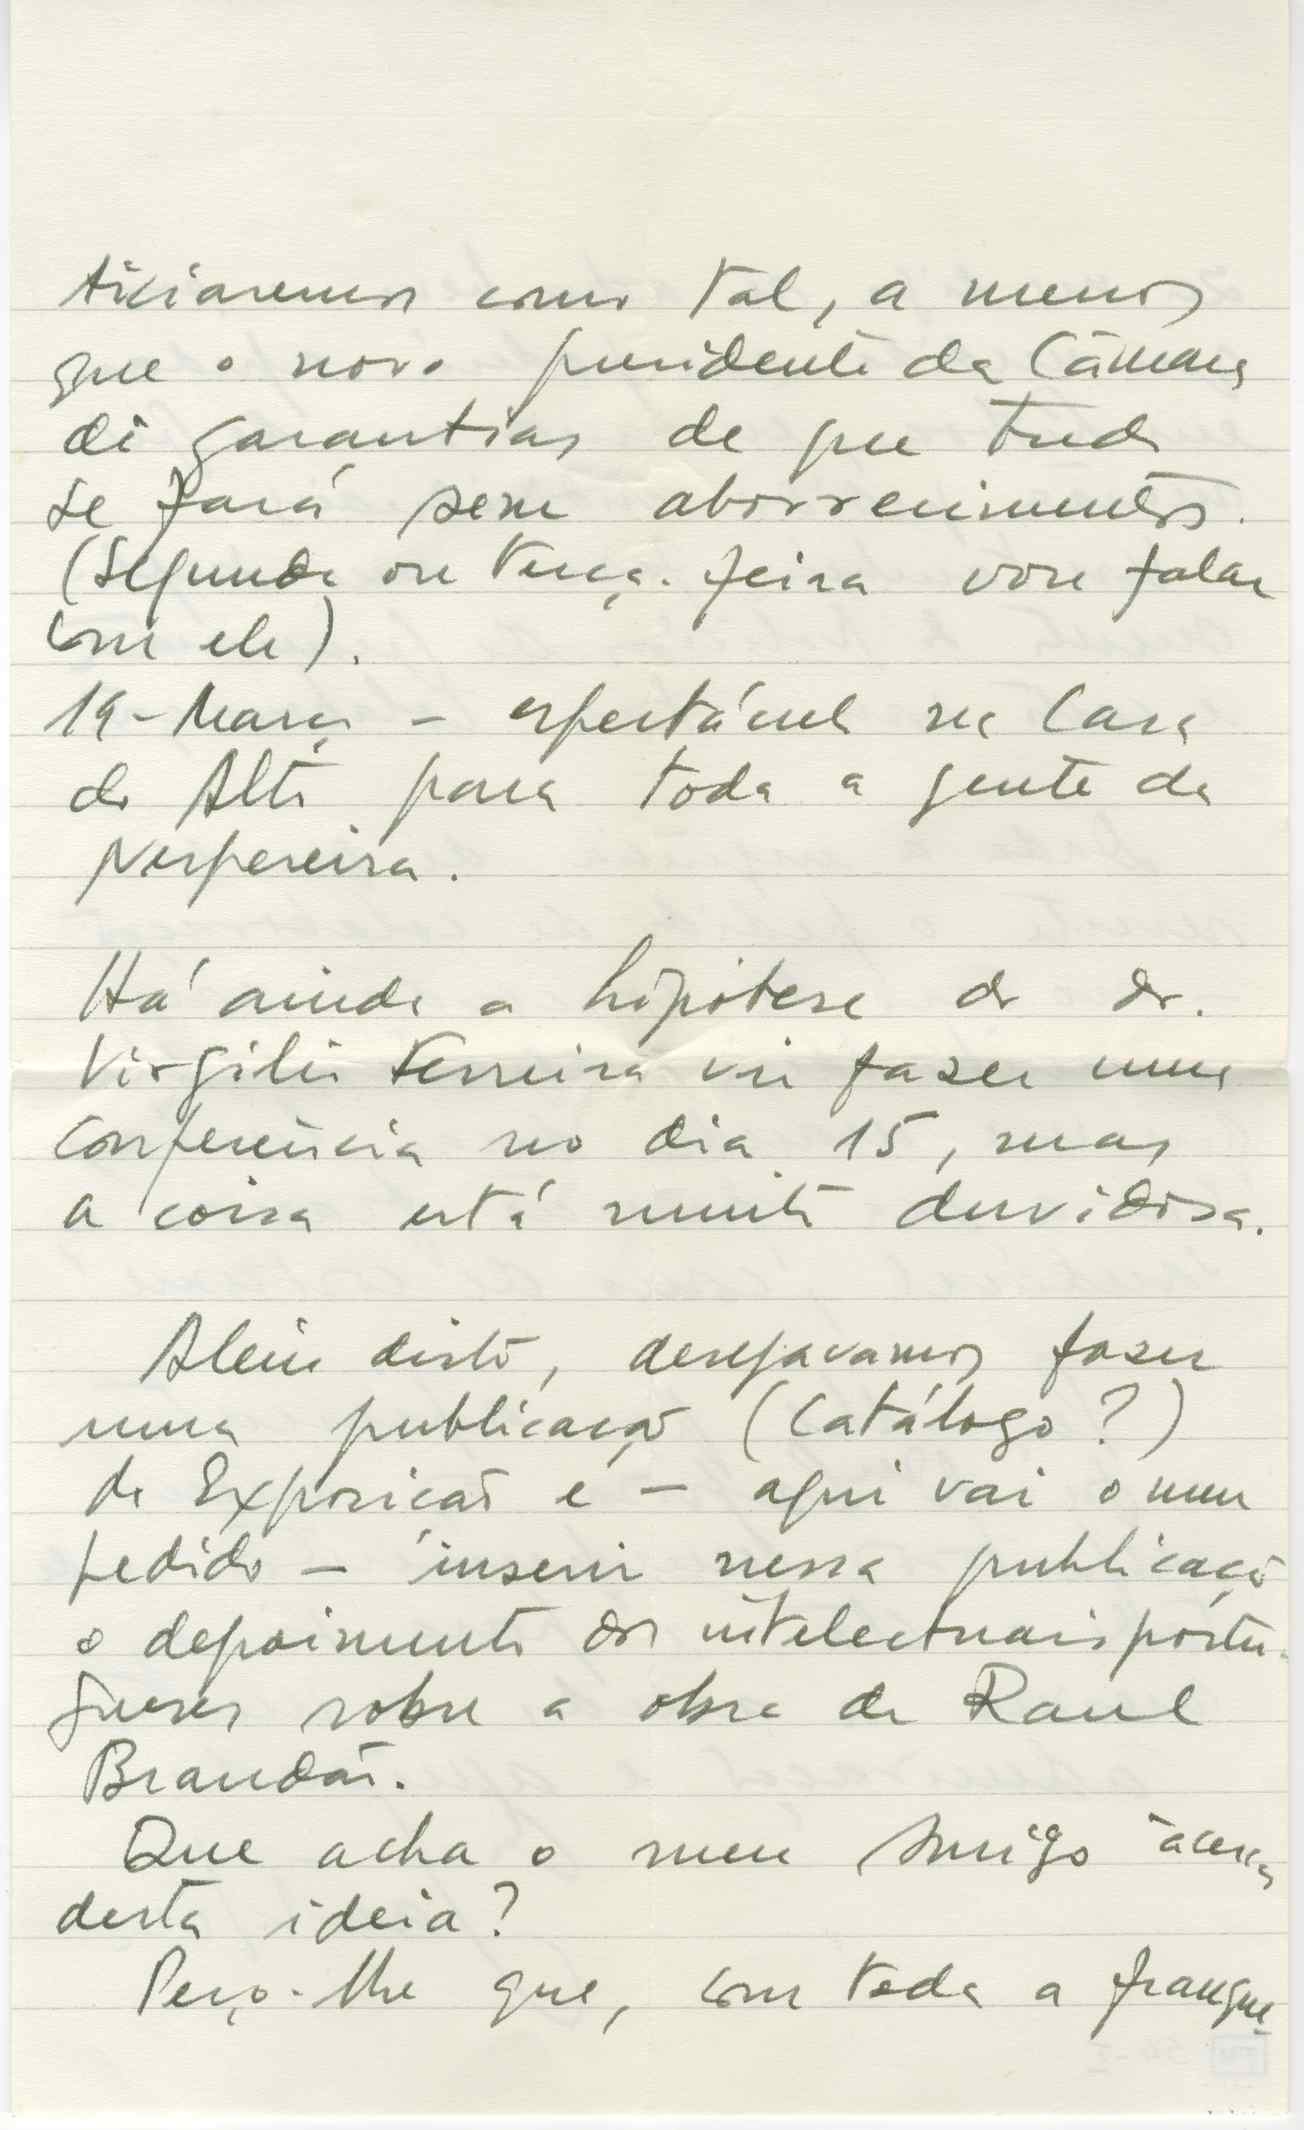 ticiaremos como tal, a menos
que o novo presidente da Câmara
dê garantias de que tudo
se fará sem aborrecimentos.
(Segunda ou terça-feira vou falar
com ele).
19-Março - espectáculo na Casa
do Alto para toda a gente da
Nespereira.
Há ainda a hipótese do dr.
Virgílio Ferreira vir fazer uma
conferência no dia 15, mas
a coisa está muito duvidosa.
Além disto, desejavamos fazer
uma publicação (catálogo?)
da Exposição e - aqui vai o meu
pedido - inserir nessa publicação
o depoimento dos intelectuais portu-
gueses sobre a obra de Raul
Brandão.
Que acha o meu Amigo àcerca
desta ideia?
Peço-lhe que, com toda a franque-